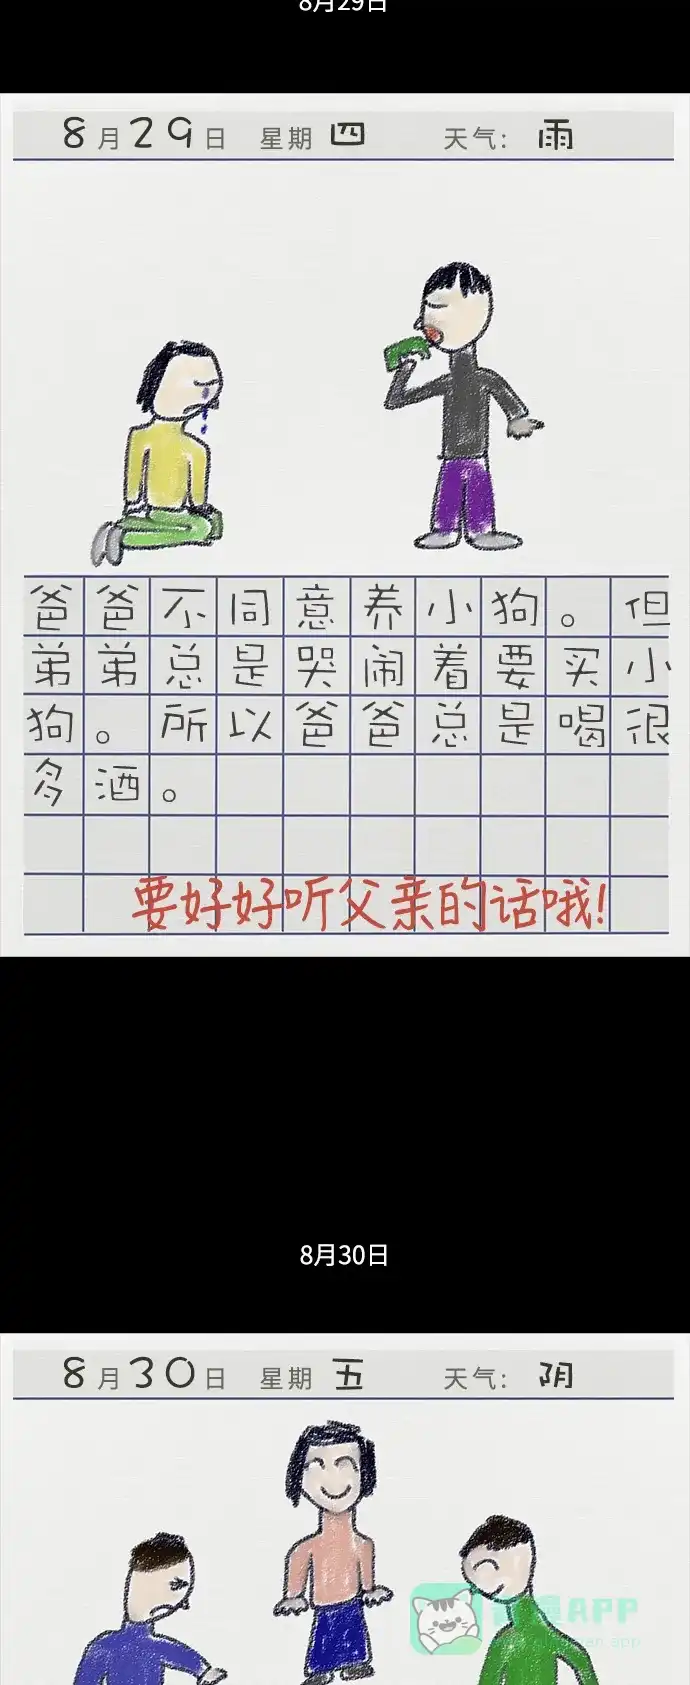 8月29日
8月29日 星期 四 天气: 雨
爸爸不同意养小狗。但
弟弟总是哭闹着要买小
狗。所以爸爸总是喝很
多酒。
要好好听父亲的话哦!
8月30日
8月30日 星期 五 天气: 阴